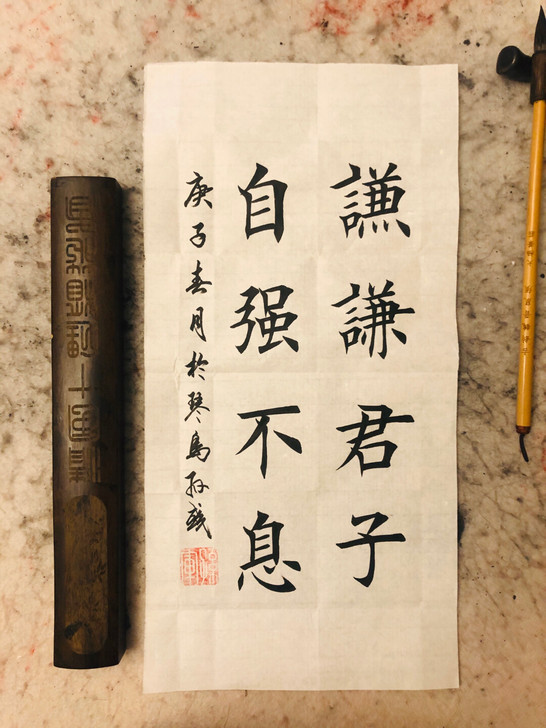 謙謙君子
自强不息
庚子春月於琴島孙